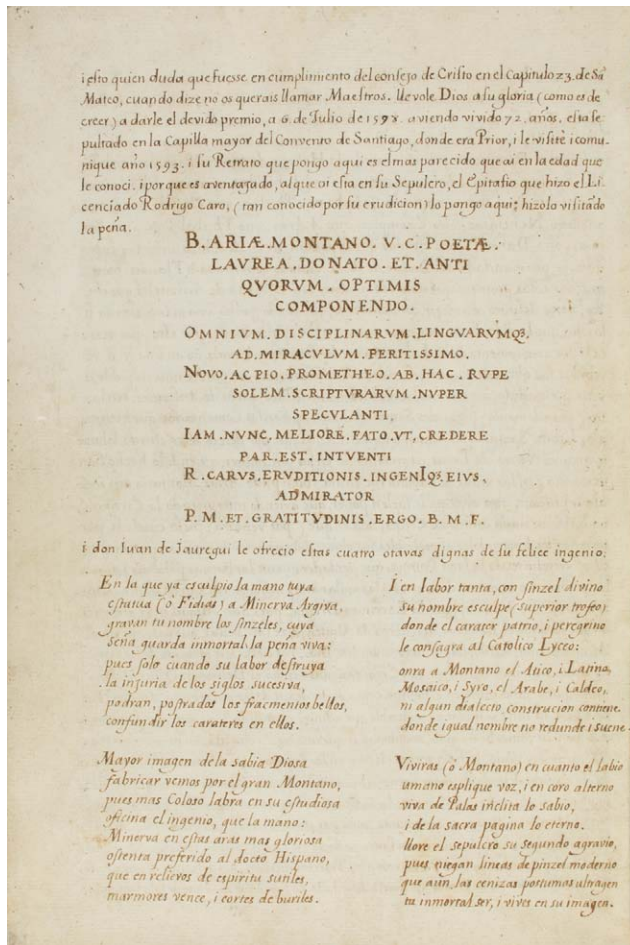 i esto quien duda que fuesse en cumplimiento del consejo de Cristo en el Capitulo 23. de Sā
Mateo, cuando dize no os querais llamar Maestros. llevole Dios a su gloria (como es de
creer) a darle el devido premio, a 6 de Julio de 1598. aviendo vivido 72. años. esta se
pultado en la Capilla mayor del Convento de Santiago, donde era Prior, i le visitè i comu-
nique año 1593. i su Retrato que pongo aqui es el mas parecido que ai en la edad que
le conoci. i porque es aventajado, al que ai esta en su Sepulcro, el Epitafio que hizo el Li-
cenciado Rodrigo Caro, (tan conocido por su erudicion) lo pongo aqui: hizolo visitādo
la peña.
B. ARIÆ. MONTANO. V. C. POETÆ.
LAVREA. DONATO. ET. ANTI
QVORVM. OPTIMIS
COMPONENDO.
OMNIVM. DISCIPLINARVM. LINGVARVMQꝫ.
AD. MIRACVLVM. PERITISSIMO.
NOVO. AC PIO. PROMETHEO. AB. HAC. RVPE
SOLEM. SCRIPTVRARVM. NVPER
SPECVLANTI.
IAM. NVNC. MELIORE. FATO. VT. CREDERE
PAR. EST. INTVENTI
R. CARVS. ERVDITIONIS. INGENIQꝫ. EIVS.
ADMIRATOR
P. M. ET. GRATITVDINIS. ERGO. B. M. F.
i don Iuan de Iauregui le ofrecio estas cuatro otavas dignas de su felice ingenio:
En la que ya esculpio la mano tuya
estatua (ò Fidias) a Minerva Argiva,
gravan tu nombre los sinzeles, cuya
seña guarda inmortal la peña viva:
pues solo cuando su labor destruya
la injuria de los siglos sucesiva,
podran, postrados los fracmentos bellos,
confundir los carateres en ellos.
Mayor imagen de la sabia Diosa
fabricar vemos por el gran Montano,
pues mas Coloso labra en su estudiosa
oficina el ingenio, que la mano:
Minerva en estas aras mas gloriosa
ostenta preferido al docto Hispano,
que en relievos de espiritu sutiles,
marmores vence, i cortes de buriles.
I en labor tanta, con sinzel divino
su nombre esculpe (superior trofeo)
donde el carater patrio, i peregrino
le consagra al Catolico Lyceo:
onra a Montano el Atico, i Latino,
Mosaico, i Syro, el Arabe, i Caldeo,
ni algun dialecto, construcion contiene
donde igual nombre no redunde i suene.
Viviras (ò Montano) en cuanto el labio
umano esplique voz, i en coro alterno
viva de Palas inclita lo sabio,
i de la sacra pagina lo eterno.
llore el sepulcro su segundo agravio,
pues niegan lineas de pinzel moderno
que aun, las cenizas postumas ultragen
tu inmortal ser, i vives en su imagen.